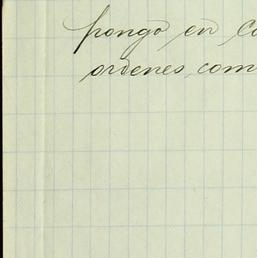 pongo en Co
ordenes com